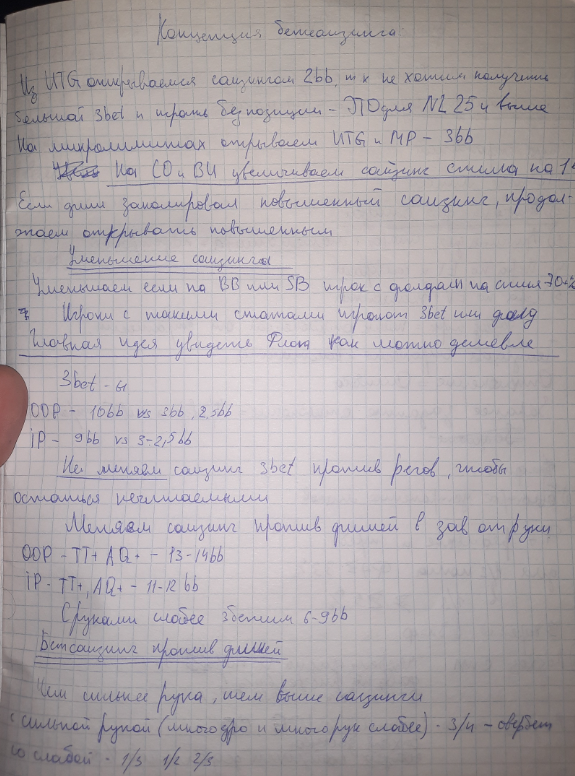 Концепция бетсайзинга
Из UTG открываемся сайзингом 2bb, т к не хотим получить
большой 3bet и играть без позиции - ЭТО для NL 25 и выше
На микролимитах открываем UTG и MP - 3bb
На CO и BU увеличиваем сайзинг стила на 1
Если фиши заколировал повышенный сайзинг, продол-
жаем открывать повышенным
Уменьшение сайзинга
Уменьшаем если на BB или SB игрок с фолдом на стил 70-
Игроки с такими статами играют 3bet или фолд
Главная идея увидеть Флоп как можно дешевле
3bet-ы
OOP - 10bb vs 3bb, 2,5bb
iP - 9bb vs 3-2,5bb
Не меняем сайзинг 3bet против регов, чтобы
остаться нечитаемыми
Меняем сайзинг против фишей в зав от руки
OOP - TT+ AQ+ - 13-14bb
iP - TT+, AQ+ - 11-12 bb
С руками слабее 3бетим 6-9bb
Бетсайзинг против фишей
Чем сильнее рука, тем выше сайзинги
с сильной рукой (много эдро и много рук слабее) - 3/4 - овербет
со слабой - 1/3 1/2 2/3